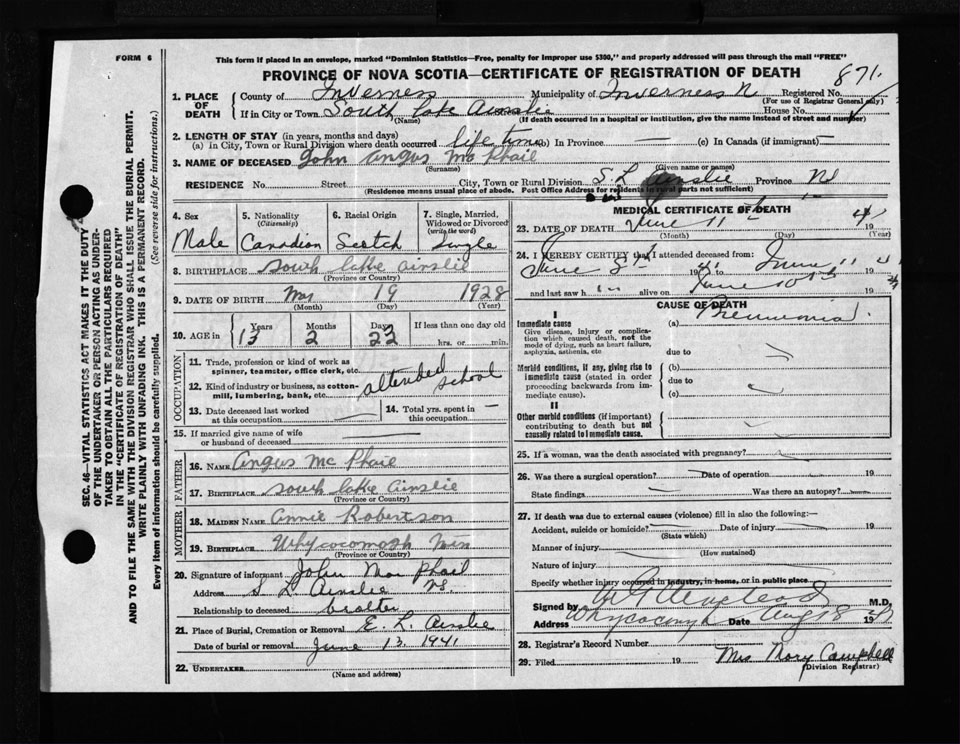 FORM 6
This form if placed in an envelope, marked "Dominion Statistics—Free, penalty for improper use $300," and properly addressed will pass through the mail "FREE"
PROVINCE OF NOVA SCOTIA—CERTIFICATE OF REGISTRATION OF DEATH
871
1. PLACE OF DEATH
County of Inverness Municipality of Inverness N Registered No.
(For use of Registrar General only)
If in City or Town South Lake Ainslie House No.
(Name) (If death occurred in a hospital or institution, give the name instead of street and number)
2. LENGTH OF STAY (in years, months and days)
(a) In City, Town or Rural Division where death occurred life time (b) In Province — (c) In Canada (if immigrant) —
3. NAME OF DECEASED John Angus Mc Phail
(Surname) (Given name or names)
RESIDENCE No. Street City, Town or Rural Division S. L Ainslie Province NS
(Residence means usual place of abode. Post Office Address for residents in rural parts not sufficient)
4. Sex
Male
5. Nationality
(Citizenship)
Canadian
6. Racial Origin
Scotch
7. Single, Married, Widowed or Divorced
(write the word)
Single
8. BIRTHPLACE South Lake Ainslie
(Province or Country)
9. DATE OF BIRTH 19 1928
(Month) (Day) (Year)
10. AGE in
Years Months Days If less than one day old
13 2 22 hrs. or min.
OCCUPATION
11. Trade, profession or kind of work as
spinner, teamster, office clerk, etc.
12. Kind of industry or business, as cotton-
mill, lumbering, bank, etc.
attended school
13. Date deceased last worked
at this occupation
14. Total yrs. spent in
this occupation —
15. If married give name of wife
or husband of deceased —
FATHER
16. NAME Angus Mc Phail
17. BIRTHPLACE South Lake Ainslie
(Province or Country)
MOTHER
18. MAIDEN NAME Annie Robertson
19. BIRTHPLACE Whycocomagh
(Province or Country)
20. Signature of informant John Mac Phail
Address S L Ainslie NS.
Relationship to deceased
21. Place of Burial, Cremation or Removal E. L. Ainslie
Date of burial or removal June 13 1941
22. UNDERTAKER
(Name and address)
MEDICAL CERTIFICATE OF DEATH
23. DATE OF DEATH June 11th 1941
(Month) (Day) (Year)
24. I HEREBY CERTIFY that I attended deceased from:
June to June 11 41
and last saw him alive on June 10th 19
CAUSE OF DEATH
I
Immediate cause
Give disease, injury or complica-
tion which caused death, not the
mode of dying, such as heart failure,
asphyxia, asthenia, etc
(a) Pneumonia.
due to
Morbid conditions, if any, giving rise to
immediate cause (stated in order
proceeding backwards from im-
mediate cause).
(b)
due to
(c)
II
Other morbid conditions (if important)
contributing to death but not
causally related to immediate cause.
25. If a woman, was the death associated with pregnancy?
26. Was there a surgical operation? Date of operation 19
State findings Was there an autopsy?
27. If death was due to external causes (violence) fill in also the following:—
Accident, suicide or homicide? Date of injury 19
(State which)
Manner of injury
(How sustained)
Nature of injury
Specify whether injury occurred in industry, in home, or in public place
Signed by M.D.
Address Whycocomagh Date Aug 18 19
28. Registrar's Record Number
29. Filed 19 Mrs Rory Campbell
(Division Registrar)
SEC. 46—VITAL STATISTICS ACT MAKES IT THE DUTY
OF THE UNDERTAKER OR PERSON ACTING AS UNDER-
TAKER TO OBTAIN ALL THE PARTICULARS REQUIRED
IN THE "CERTIFICATE OF REGISTRATION OF DEATH"
AND TO FILE THE SAME WITH THE DIVISION REGISTRAR WHO SHALL ISSUE THE BURIAL PERMIT.
WRITE PLAINLY WITH UNFADING INK. THIS IS A PERMANENT RECORD.
Every item of information should be carefully supplied. (See reverse side for instructions.)